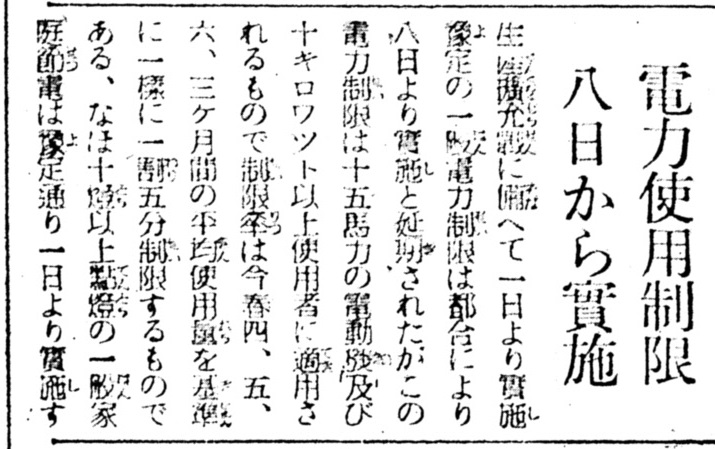 電力使用制限
八日から實施
生産擴充戰に備へて一日より實施
豫定の一般電力制限は都合により
八日より實施と延期されたがこの
電力制限は十五馬力の電動機及び
十キロワツト以上使用者に適用さ
れるもので制限率は今春四、五、
六、三ケ月間の平均使用量を基準
に一樣に一割五分制限するもので
ある、なほ十燈以上點燈の一般家
庭節電は豫定通り一日より實施す